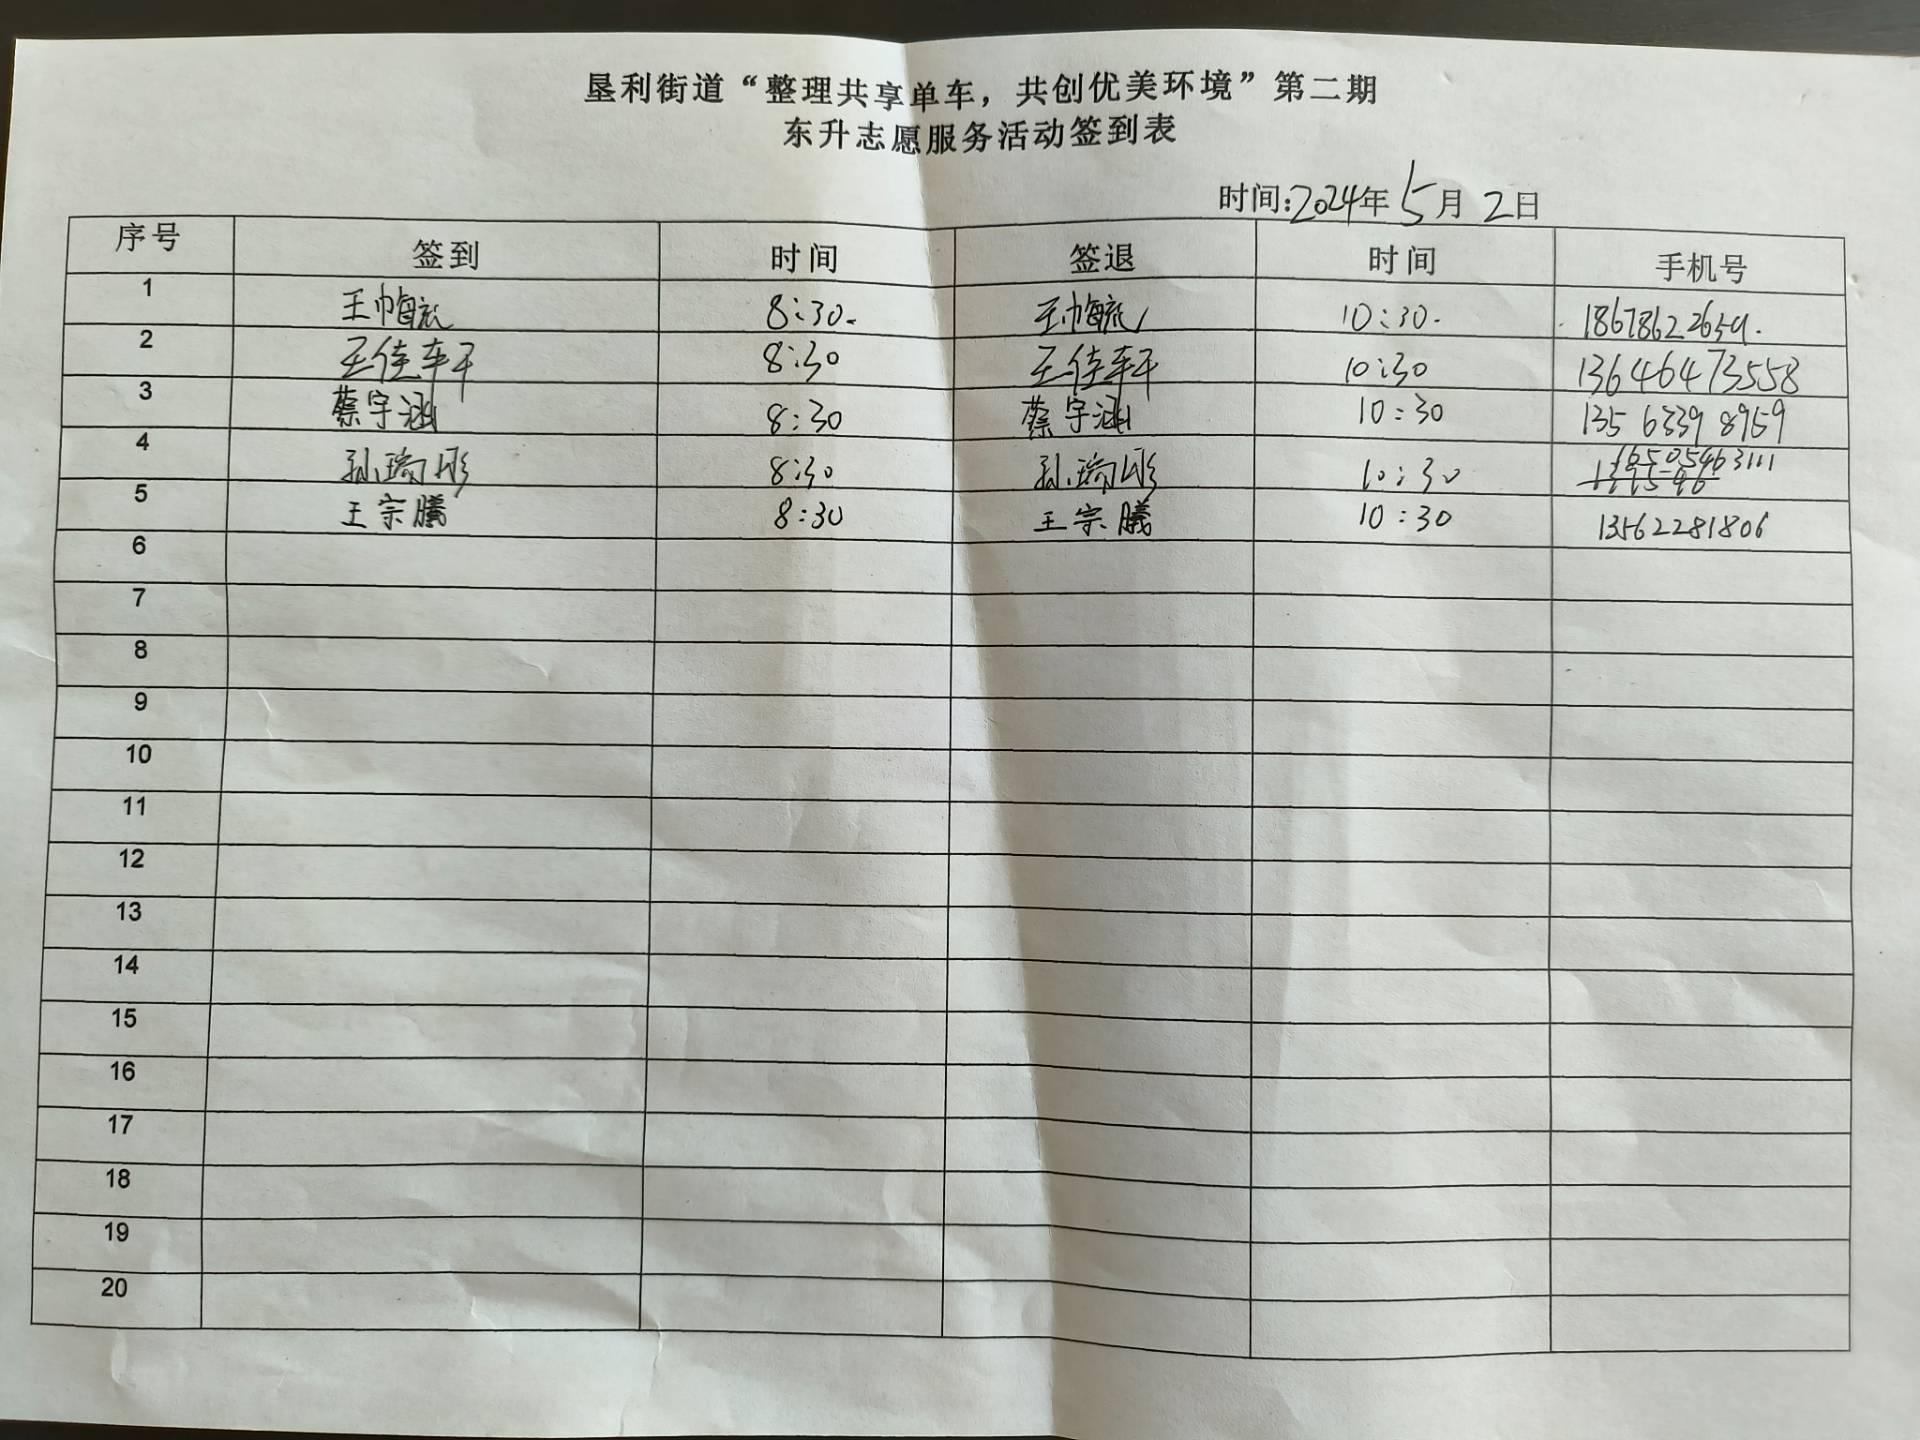 垦利街道“整理共享单车，共创优美环境”第二期
东升志愿服务活动签到表
时间:2024年5月2日
序号 签到 时间 签退 时间 手机号
1 8:30. 10:30. 18678622659.
2 王佳轩 8:30 王佳轩 10:30 13646473558
3 蔡宇涵 8:30 蔡宇涵 10:30 135 6339 8959
4 孙瑞彤 8:30 孙瑞彤 10:30 16505463111
5 王宗腾 8:30 王宗腾 10:30 13562281806
6
7
8
9
10
11
12
13
14
15
16
17
18
19
20